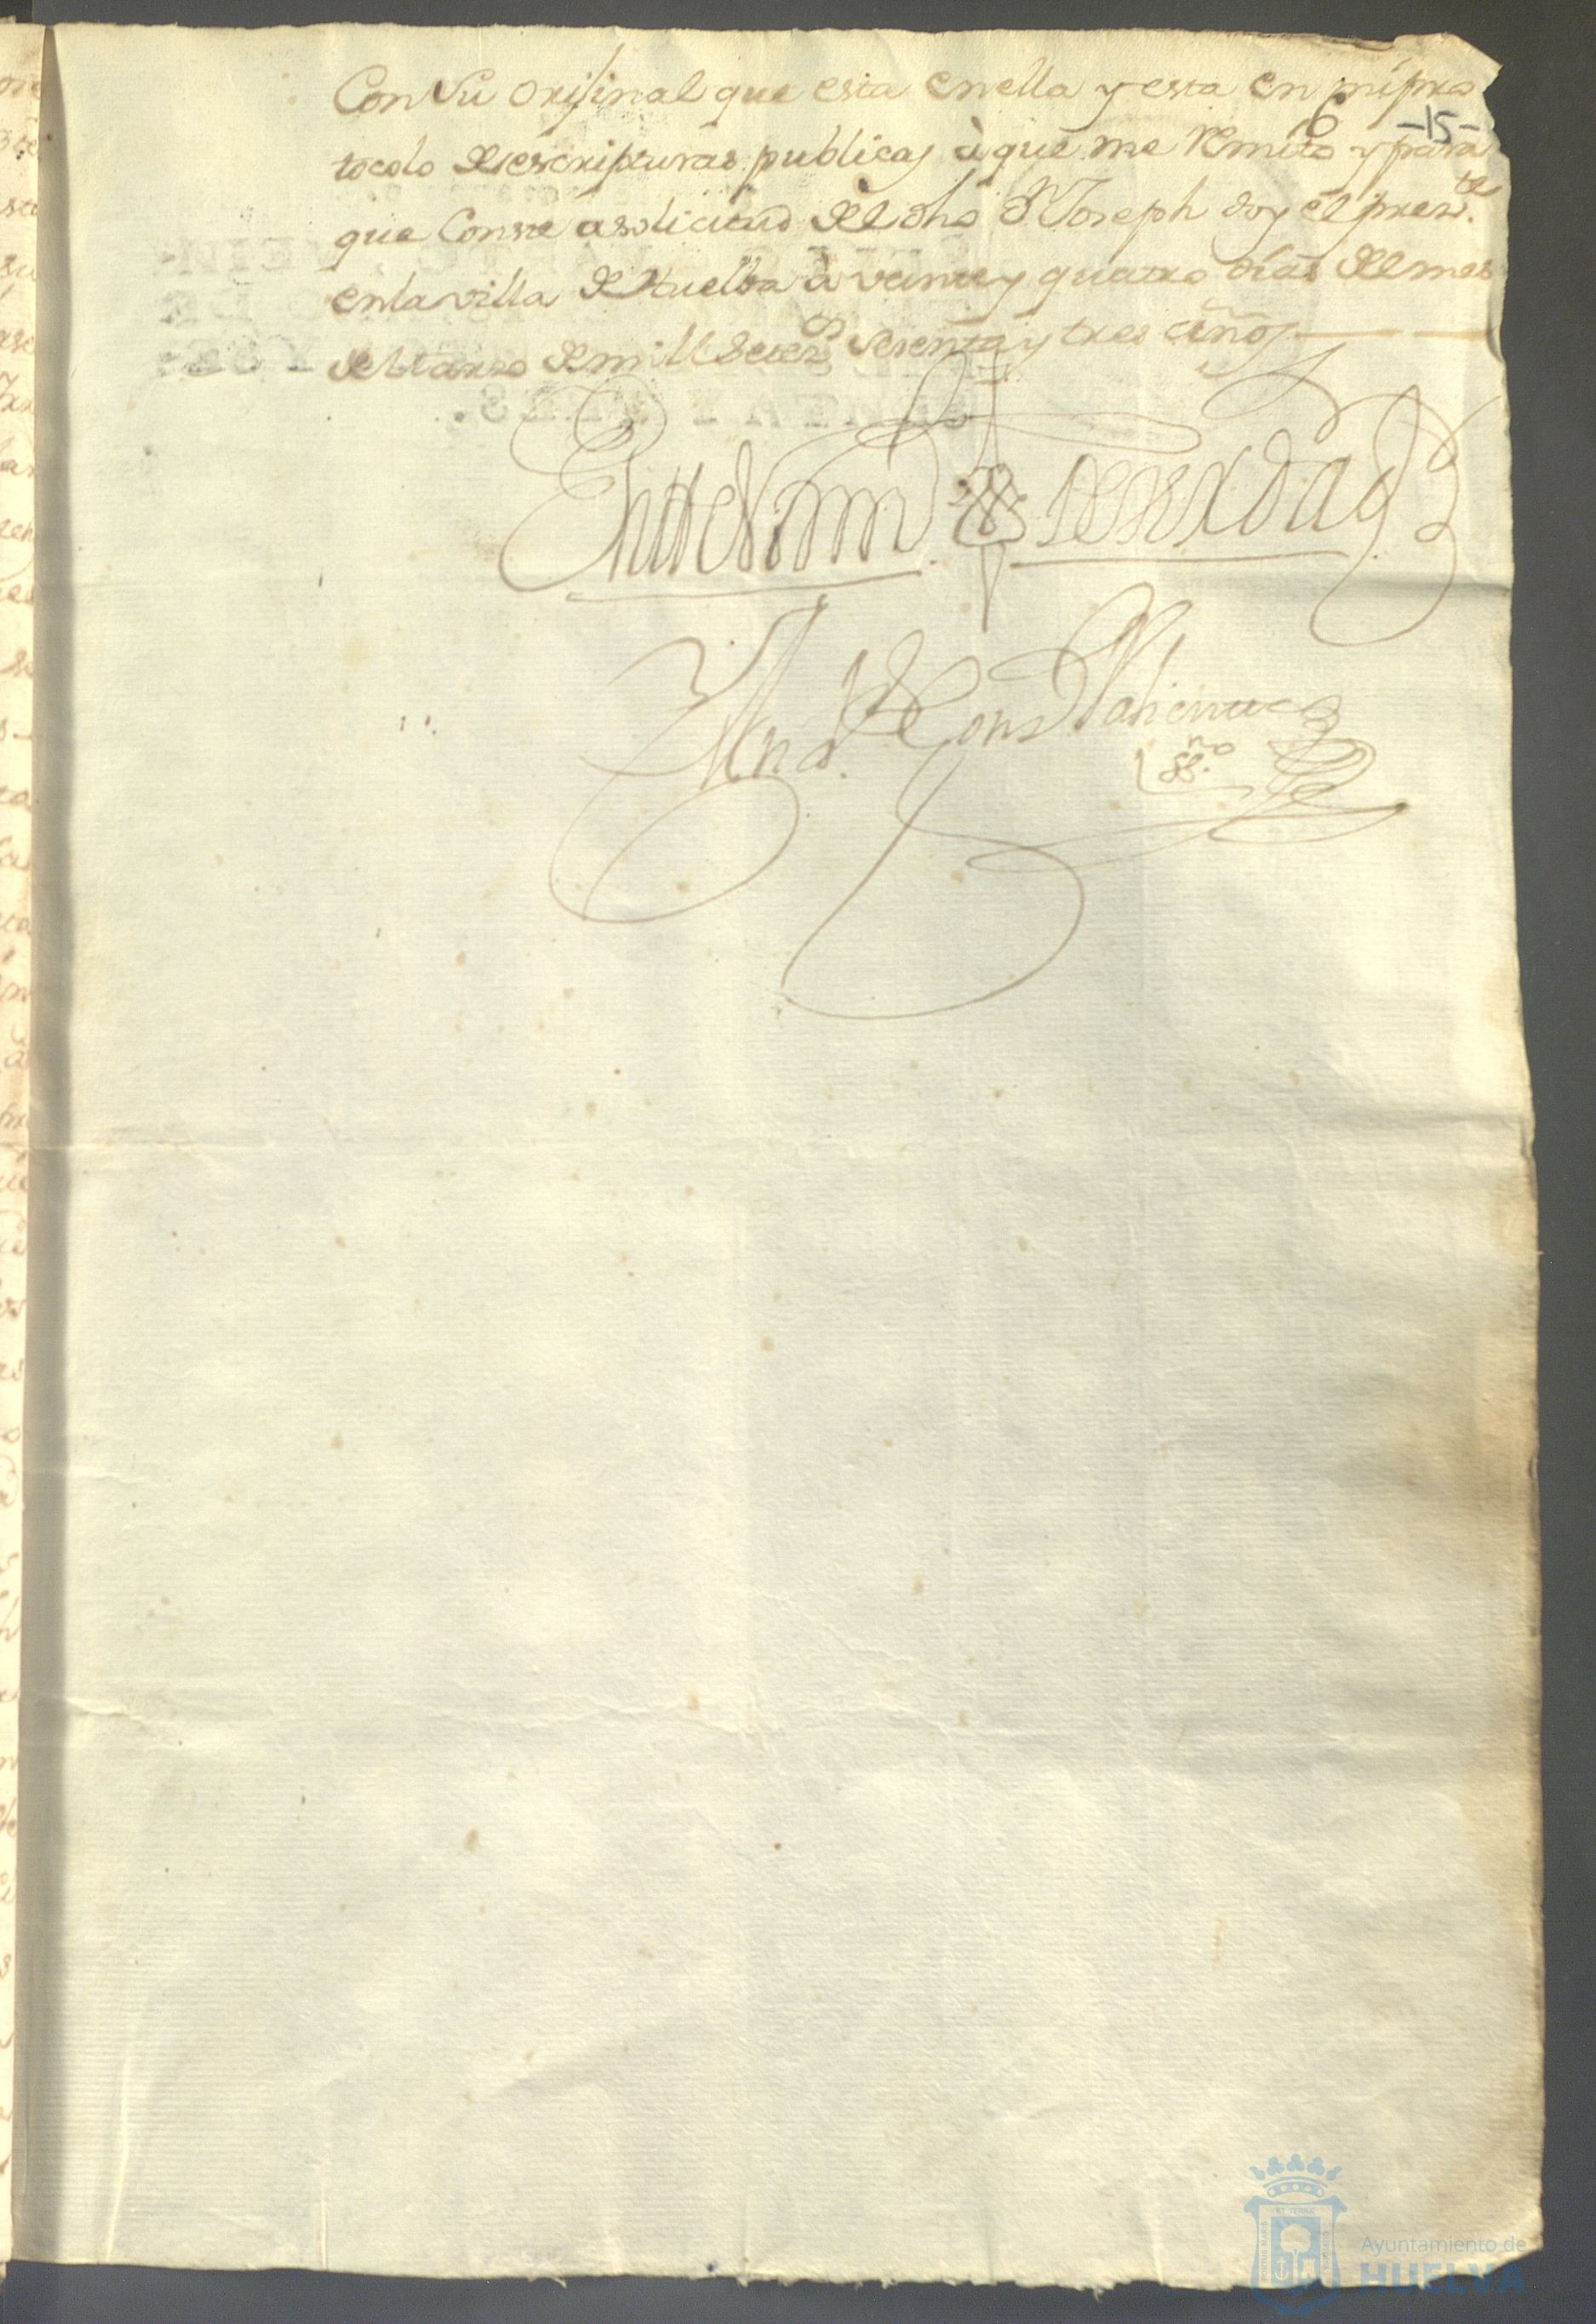 Con Su original que esta en ella y esta en mi pro
6 -15-
tocolo de escripturas publicas à que me Remito y para
que Conste a solicitud del dho Dn Joseph doy el presente
en la villa de Huelva à veinte y quatro dias del mes
de Marzo de mill setecos sesenta y tres años
En testim de verdad
Ando de
ssno
Ayuntamiento de
HUELVA